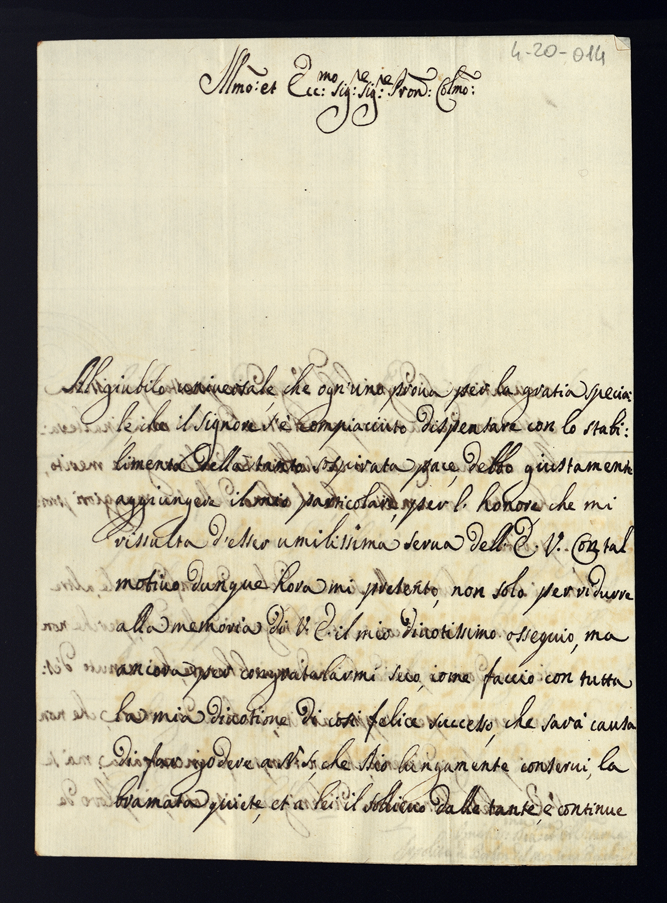 4-20-014
Illmo: et Ecc:mo Sig:re Sig:re Pron: Colmo:
Al giubilo universale che ogn'uno prova per la gratia specia:
le che il Signore s'è compiaciuto dispensare con lo stabi:
limento della tanto sospirata pace, debbo giustamente
aggiungere il mio particolare, per l'honore che mi
rissulta d'esser umilissima serva dell'E. V. Con tal
motivo dunque hora mi presento, non solo per ridurre
alla memoria di V. E. il mio divotissimo ossequio, ma
ancora per congratularmi seco, come faccio con tutta
la mia divotione di così felice successo, che sarà causa
di far godere a N. S., che Dio lungamente conservi, la
bramata quiete, et a lei il solievo dalle tante, è continue